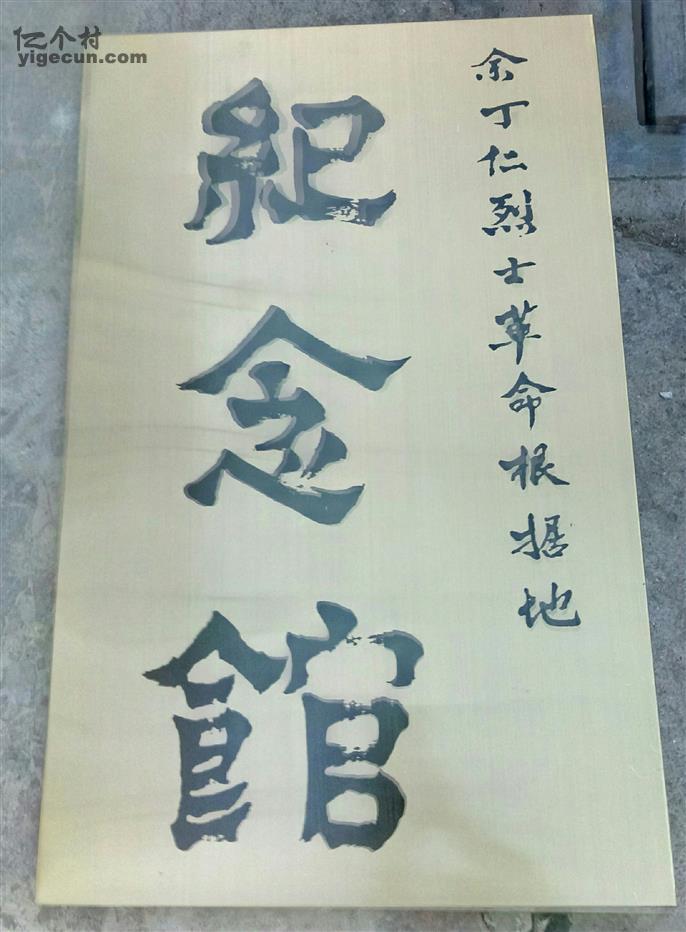 亿个村
yigecun.com
余丁仁烈士革命根据地
紀念館